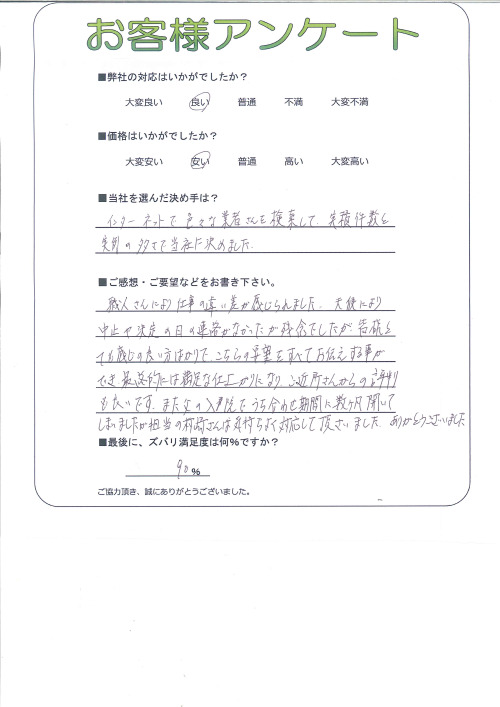 お客様アンケート
■弊社の対応はいかがでしたか？
大変良い 良い 普通 不満 大変不満
■価格はいかがでしたか？
大変安い 安い 普通 高い 大変高い
■当社を選んだ決め手は？
インターネットで色々な業者さんを検索して、実績件数と
実例の多さで当社に決めました。
■ご感想・ご要望などをお書き下さい。
職人さんにより仕事の違い差が感じられました。天候により
中止や決定の日の連絡がなかったが残念でしたが皆様と
ても感じの良い方ばかりで、こちらの要望をすべてお伝えする事が
でき最終的には満足な仕上がりになり、ご近所さんからの評判
も良いです。また父の入院でうち合わせ期間に数ヶ月開いて
しまいましたが担当の村崎さんは気持ちよく対応して頂きました。ありがとうございました
■最後に、ズバリ満足度は何％ですか？
90％
ご協力頂き、誠にありがとうございました。